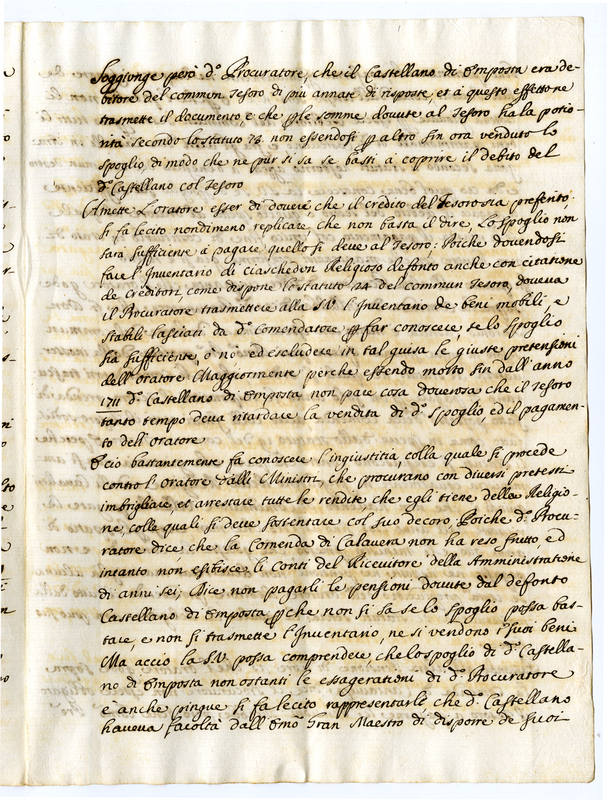 Soggiunge però d.º Procuratore, che il Castellano di Emposta era de-
bitore del commun Tesoro di più annate di risposte, et à questo effetto ne
trasmette il documento, e che p le somme dovute al Tesoro ha la potio-
rità secondo lo statuto 73. non essendosi p altro fin ora venduto lo
spoglio di modo che ne pur si sa se basti à coprire il debito del
d.º Castellano col Tesoro
Amette l'oratore esser di dovere, che il credito del Tesoro sia preferito.
si fa lecito nondimeno replicare, che non basta il dire, Lo spoglio non
sarà sufficiente à pagare quello si deve al Tesoro; Poiche dovendosi
fare l'Inventario di ciascheden Religioso defonto anche con citatione
de creditori, come dispone lo statuto 24 del commun Tesoro, doveva
il Procuratore trasmettere alla S.V. l'Inventario de beni mobili, e
stabili lasciati da d.º Comendatore p far conoscere, se lo spoglio
sia sufficiente, ò nò ed escludere in tal guisa le giuste pretensioni
dell'oratore Maggiormente perche essendo morto fin dall'anno
1711 d.º Castellano di Emposta non pare cosa doverosa che il Tesoro
tanto tempo deva ritardare la vendita di d.º spoglio, ed il pagamen-
to dell'oratore
E ciò bastantemente fa conoscere l'ingiustitia, colla quale si procede
contro l'oratore dalli Ministri, che procurano con diversi pretesti
imbrigliare et arrestare tutte le rendite che egli tiene della Religio-
ne, colle quali si deve sostentare col suo decoro, Poiche d.º Procu-
ratore dice che la Comenda di Calavera non ha reso frutto, ed
intanto non esibisce li conti del Ricevitore della Amministratione
di anni sei; Dice non pagarli le pensioni dovute dal defonto
Castellano di Emposta p che non si sa se lo spoglio possa bas-
tare, e non si trasmette l'Inventario, ne si vendono i suoi beni
Ma acciò la S.V. possa comprendere, che lo spoglio di d.º Castella-
no di Emposta non ostanti le essagerationi di d.º Procuratore
è anche pingue si fa lecito rappresentarle, che d.º Castellano
haveva facoltà dall'Em̃o Gran Maestro di disporre de suoi